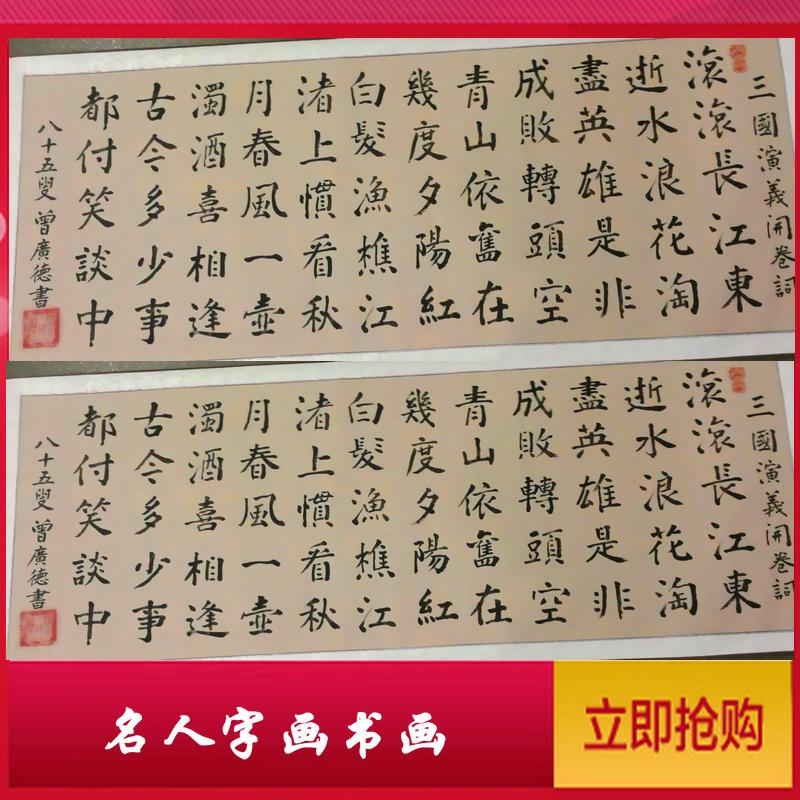 三國演義開卷詞
滾滾長江東
逝水浪花淘
盡英雄是非
成敗轉頭空
青山依舊在
幾度夕陽紅
白髮漁樵江
渚上慣看秋
月春風一壺
濁酒喜相逢
古今多少事
都付笑談中
八十五叟曾廣德書
三國演義開卷詞
滾滾長江東
逝水浪花淘
盡英雄是非
成敗轉頭空
青山依舊在
幾度夕陽紅
白髮漁樵江
渚上慣看秋
月春風一壺
濁酒喜相逢
古今多少事
都付笑談中
八十五叟曾廣德書
名人字画书画
立即抢购